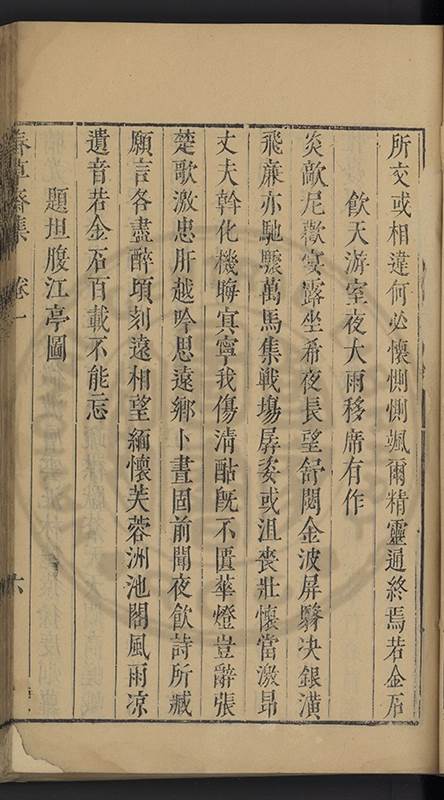 所交或相違何必懷惻惻颯爾精靈通終焉若金石
飲天游室夜大雨移席有作
炎歊尼歡宴露坐希夜長望舒閟金波屏翳决銀潢
飛廉亦馳驟萬馬集戰塲孱姿或沮喪壯懷當激昂
丈夫斡化機晦㝠寧我傷清酤旣不匱華燈豈辭張
楚歌激忠肝越吟思遠鄉卜晝固前聞夜飲詩所臧
願言各盡醉頃刻遠相望緬懷芙蓉洲池閣風雨凉
遺音若金石百載不能忘
題坦腹江亭圖
春草齋集 卷一 六